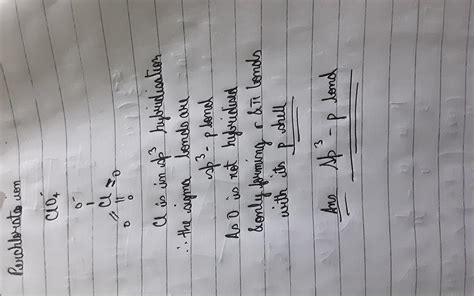 Perchlorate ion
ClO4-
O-
|
O = Cl = O
||
O
Cl is in sp3 hybridisation
∴ the sigma bonds are
sp3 - p bond
As O is not hybridised
& only forming σ & π bonds
with its p shell
Ans sp3 - p bond